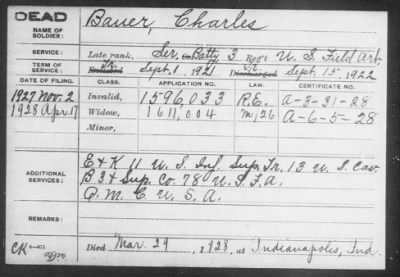 DEAD
NAME OF SOLDIER: Bauer, Charles
SERVICE: Late rank, Ser. Batty 3 Reg't U. S. Field Art.
TERM OF SERVICE: Enlisted Tr. Sept. 1, 1921 Discharged Tr. Sept. 15, 1922
DATE OF FILING. CLASS. APPLICATION NO. LAW. CERTIFICATE NO.
1927 Nov. 2 Invalid, 1596,033 R.E. A-3-31-28
1928 Apr. 17 Widow, 1611,004 M/26 A-6-5-28
Minor,
ADDITIONAL SERVICES: E & K 11 U. S. Inf. Sup. Tr. 13 U. S. Cav.
B 3 & Sup. Co. 78 U. S. F. A.
Q. M. C. U. S. A.
REMARKS:
CK
Died Mar. 29, 1928, at Indianapolis, Ind.